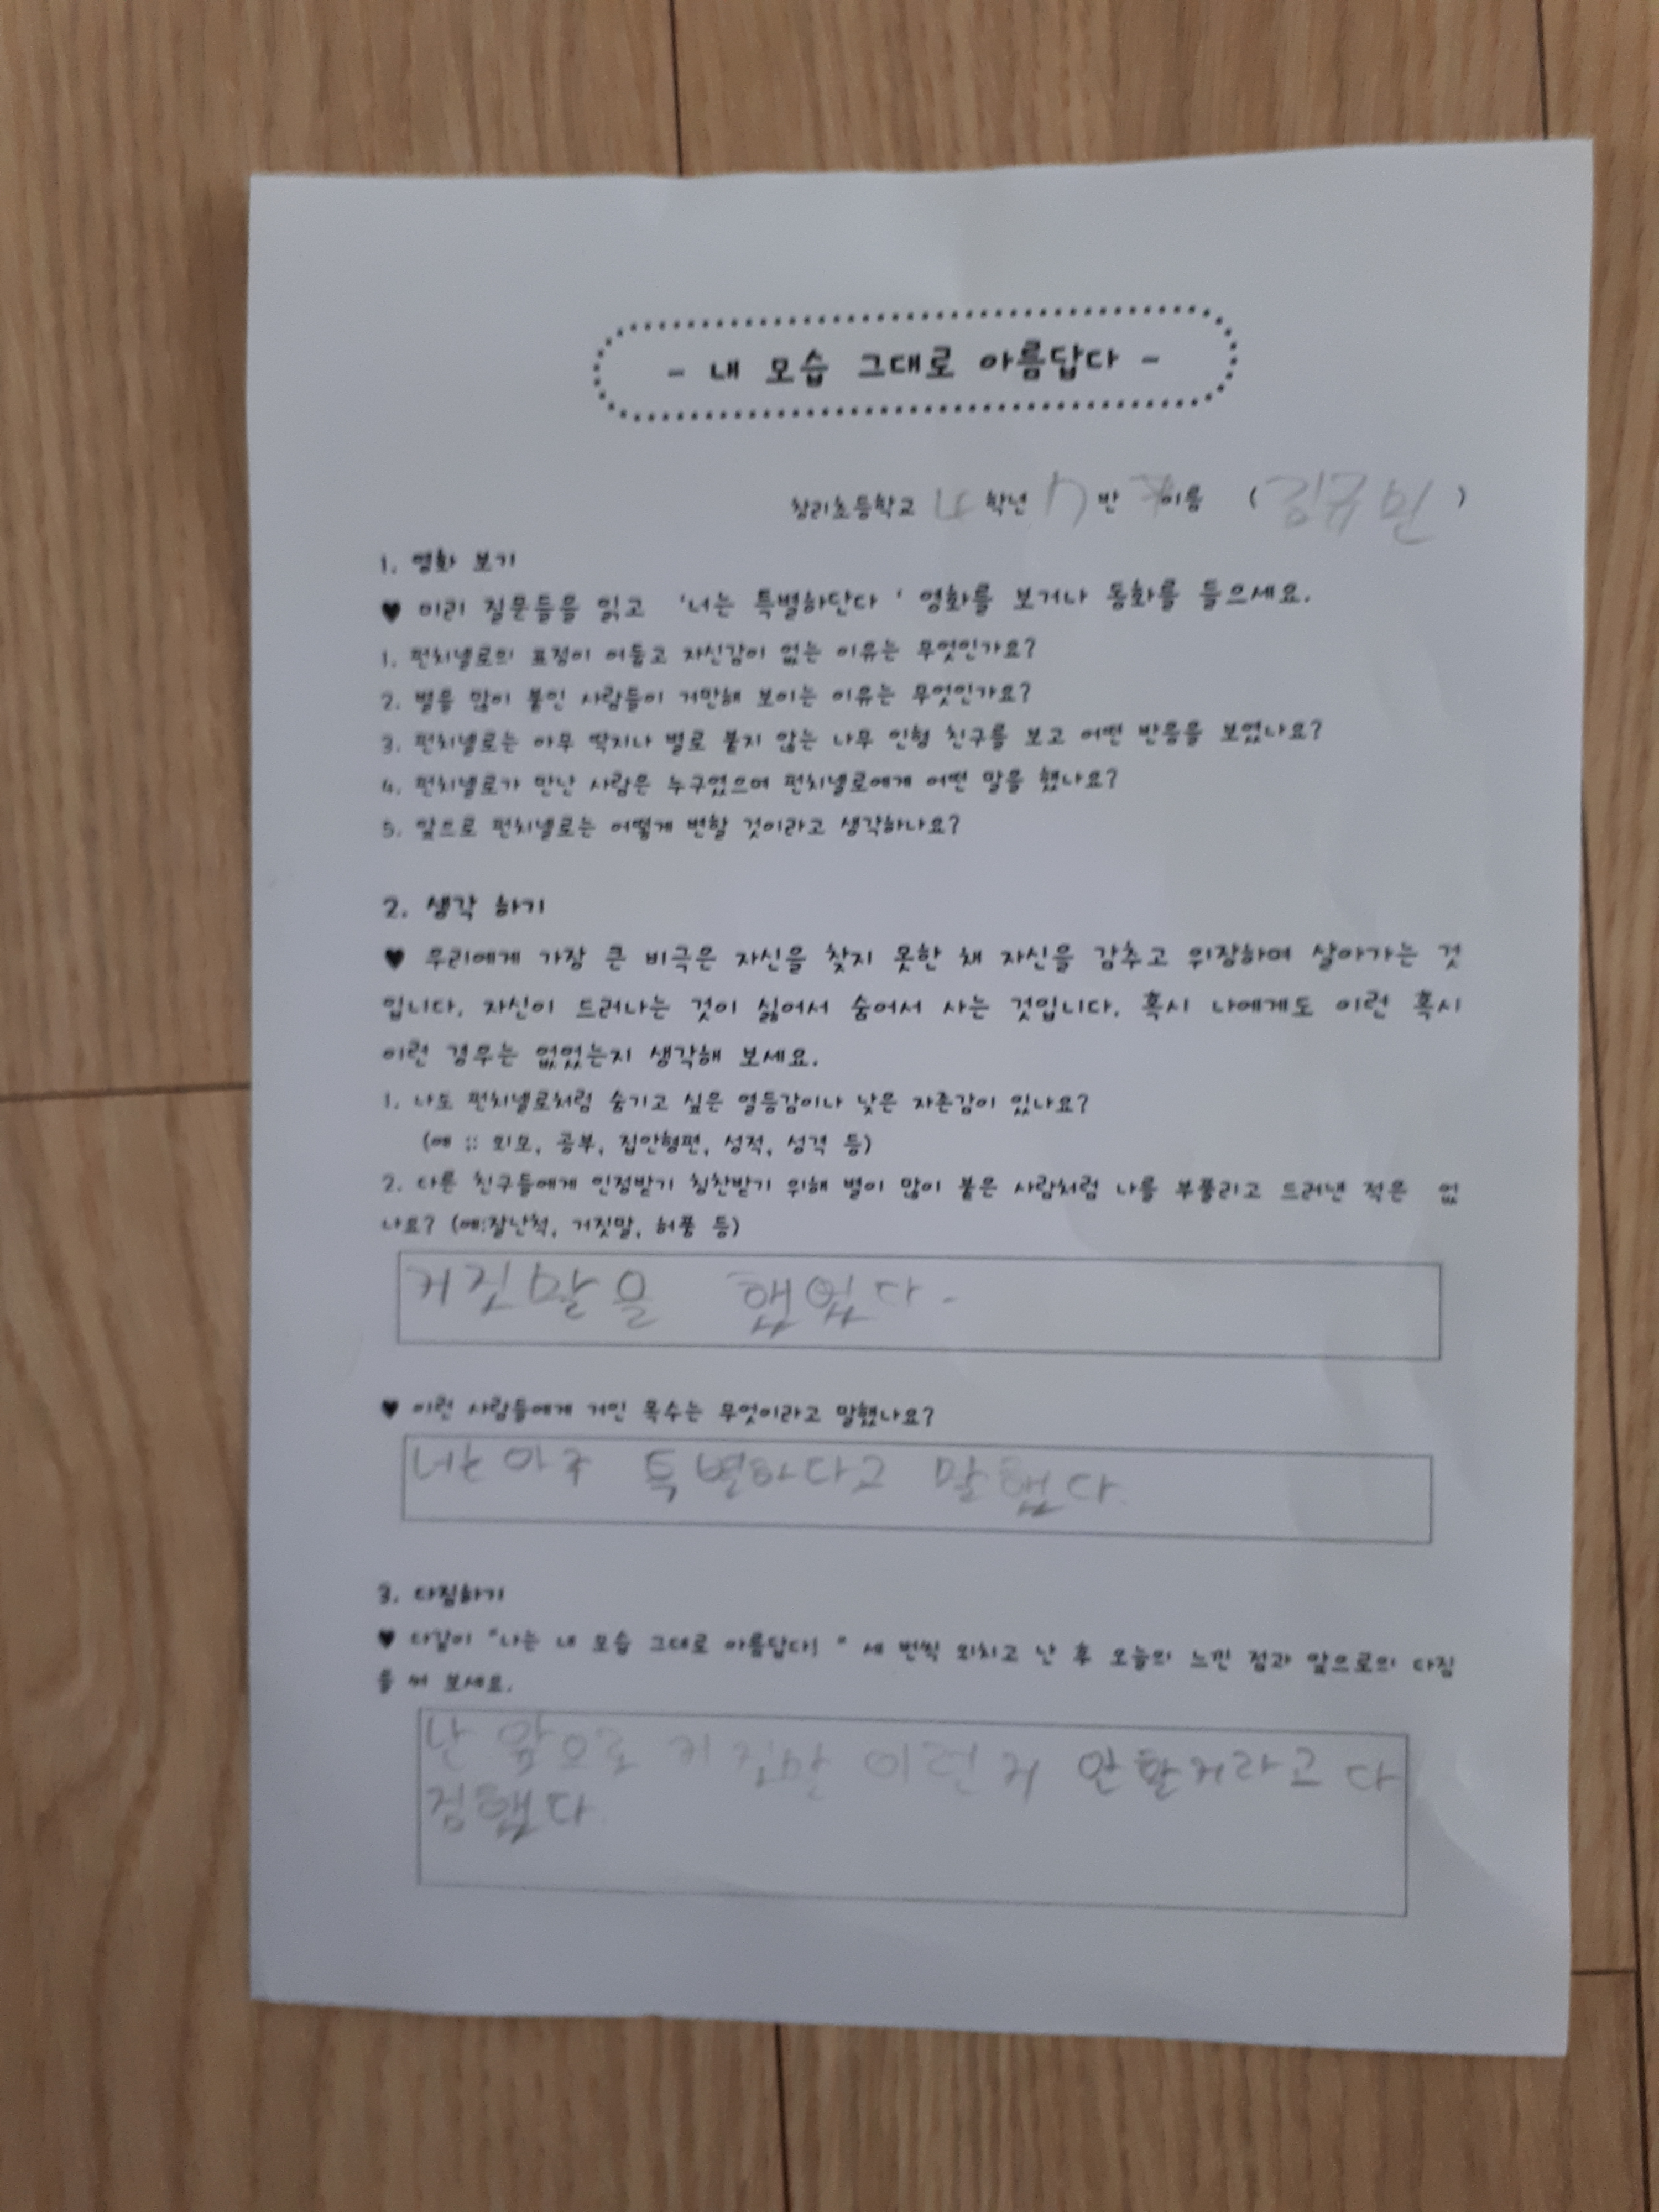 - 내 모습 그대로 아름답다 -
창리초등학교 학년 반 이름 ( )
1. 영화 보기
♥ 미리 질문들을 읽고 '너는 특별하단다 ' 영화를 보거나 동화를 들으세요.
1. 펀치넬로의 표정이 어둡고 자신감이 없는 이유는 무엇인가요?
2. 별을 많이 붙인 사람들이 거만해 보이는 이유는 무엇인가요?
3. 펀치넬로는 아무 딱지나 별로 붙지 않는 나무 인형 친구를 보고 어떤 반응을 보였나요?
4. 펀치넬로가 만난 사람은 누구였으며 펀치넬로에게 어떤 말을 했나요?
5. 앞으로 펀치넬로는 어떻게 변할 것이라고 생각하나요?
2. 생각 하기
♥ 우리에게 가장 큰 비극은 자신을 찾지 못한 채 자신을 감추고 위장하며 살아가는 것
입니다. 자신이 드러나는 것이 싫어서 숨어서 사는 것입니다. 혹시 나에게도 이런 혹시
이런 경우는 없었는지 생각해 보세요.
1. 나도 펀치넬로처럼 숨기고 싶은 열등감이나 낮은 자존감이 있나요?
(예 :: 외모, 공부, 집안형편, 성적, 성격 등)
2. 다른 친구들에게 인정받기 칭찬받기 위해 별이 많이 붙은 사람처럼 나를 부풀리고 드러낸 적은 없
나요? (예:잘난척, 거짓말, 허풍 등)
거짓말을 했었다.
♥ 이런 사람들에게 거인 목수는 무엇이라고 말했나요?
넌 아주 특별하다고 말했다.
3. 다짐하기
♥ 다같이 "나는 내 모습 그대로 아름답다! " 세 번씩 외치고 난 후 오늘의 느낀 점과 앞으로의 다짐
을 써 보세요.
난 앞으로 거짓말 이런거 안할거라고 다
짐했다.